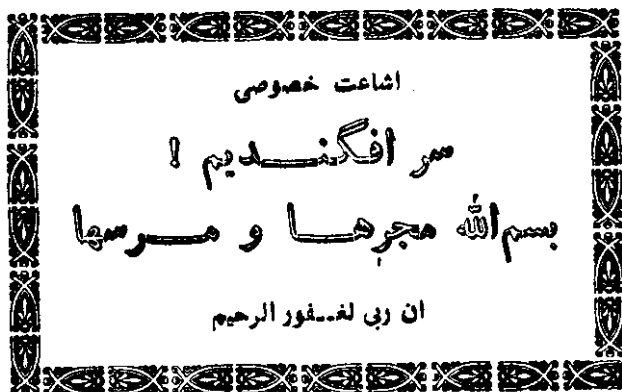 اشاعت خصوصی
سر افگندیم !
بسم الله مجرِها و مرسها
ان ربی لغفور الرحیم